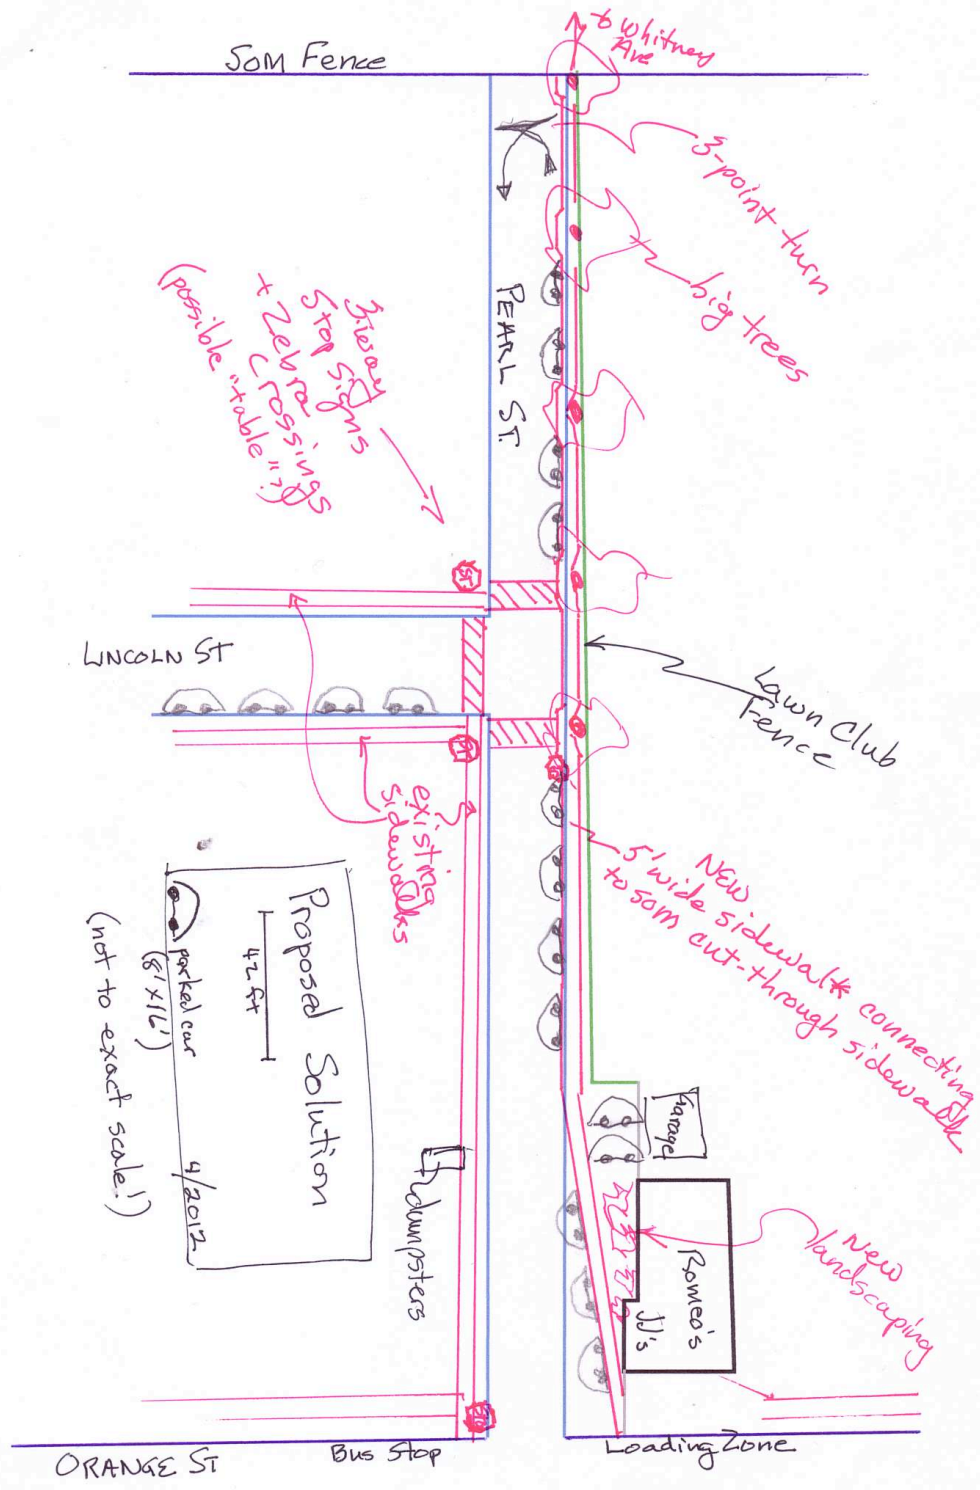 to Whitney
Ave
SOM Fence
3-point turn
big trees
PEARL ST.
3-way
Stop Signs
+ Zebra
Crossings
(possible "table"?)
ST
LINCOLN ST
Lawn Club
Fence
ST
existing
sidewalks
NEW
5' wide sidewalk* connecting
to SOM cut-through sidewalk
Proposed Solution
42 ft
parked car
(8'x16')
4/2012
(not to exact scale!)
Garage
dumpsters
Romeo's
JJ's
New
landscaping
ORANGE ST
Bus Stop
Loading Zone